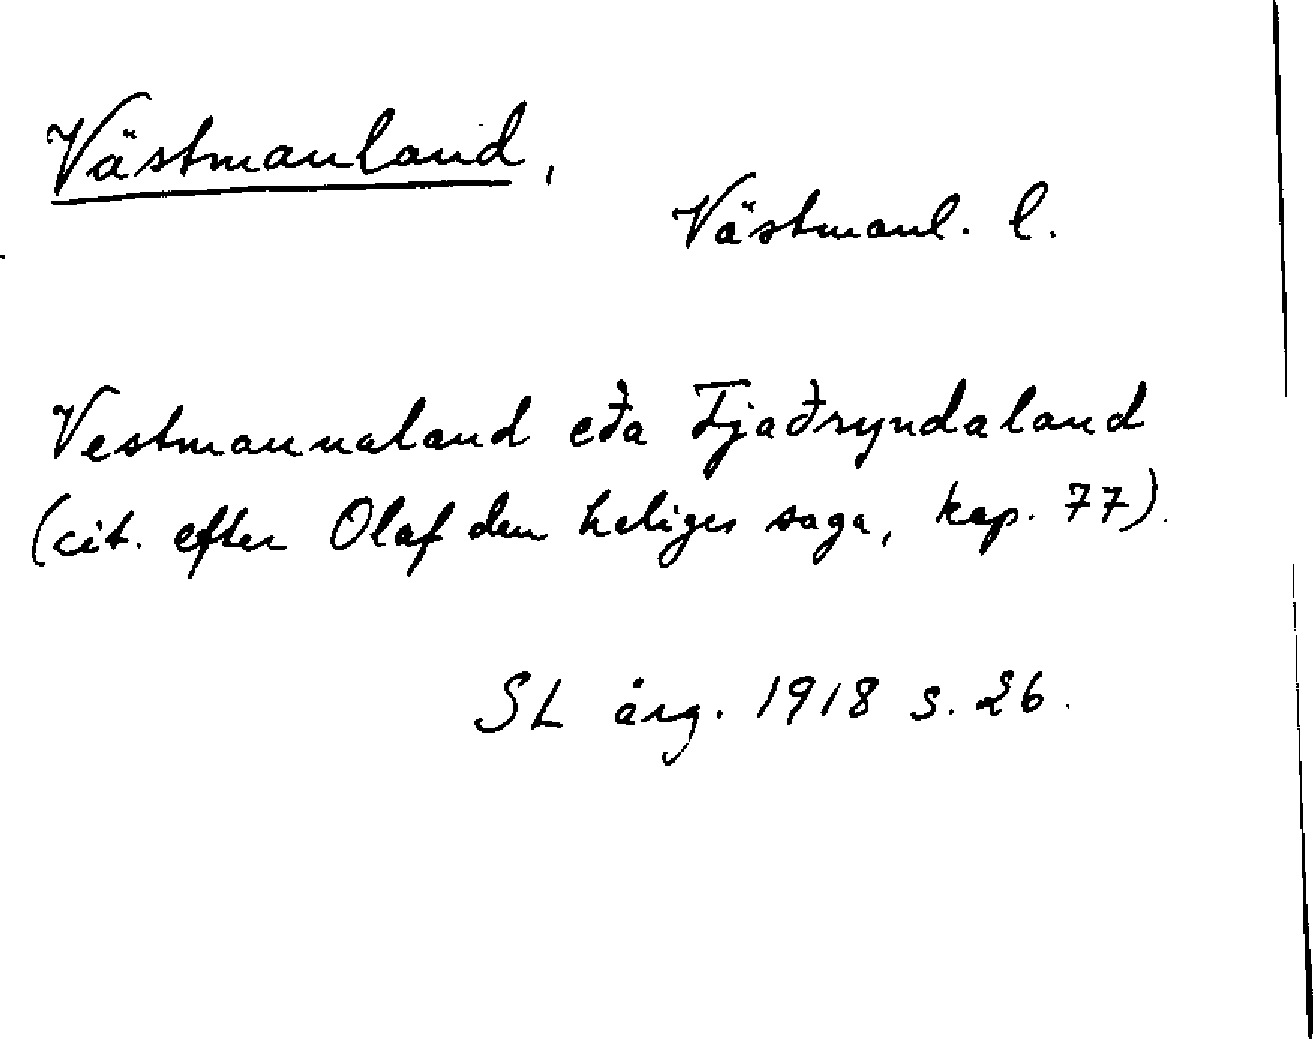 Västmanland,
Västmanl. l.
Vestmannaland eða Fjaðryndaland
(cit. efter Olaf den heliges saga, kap. 77).
SL årg. 1918 s. 26.